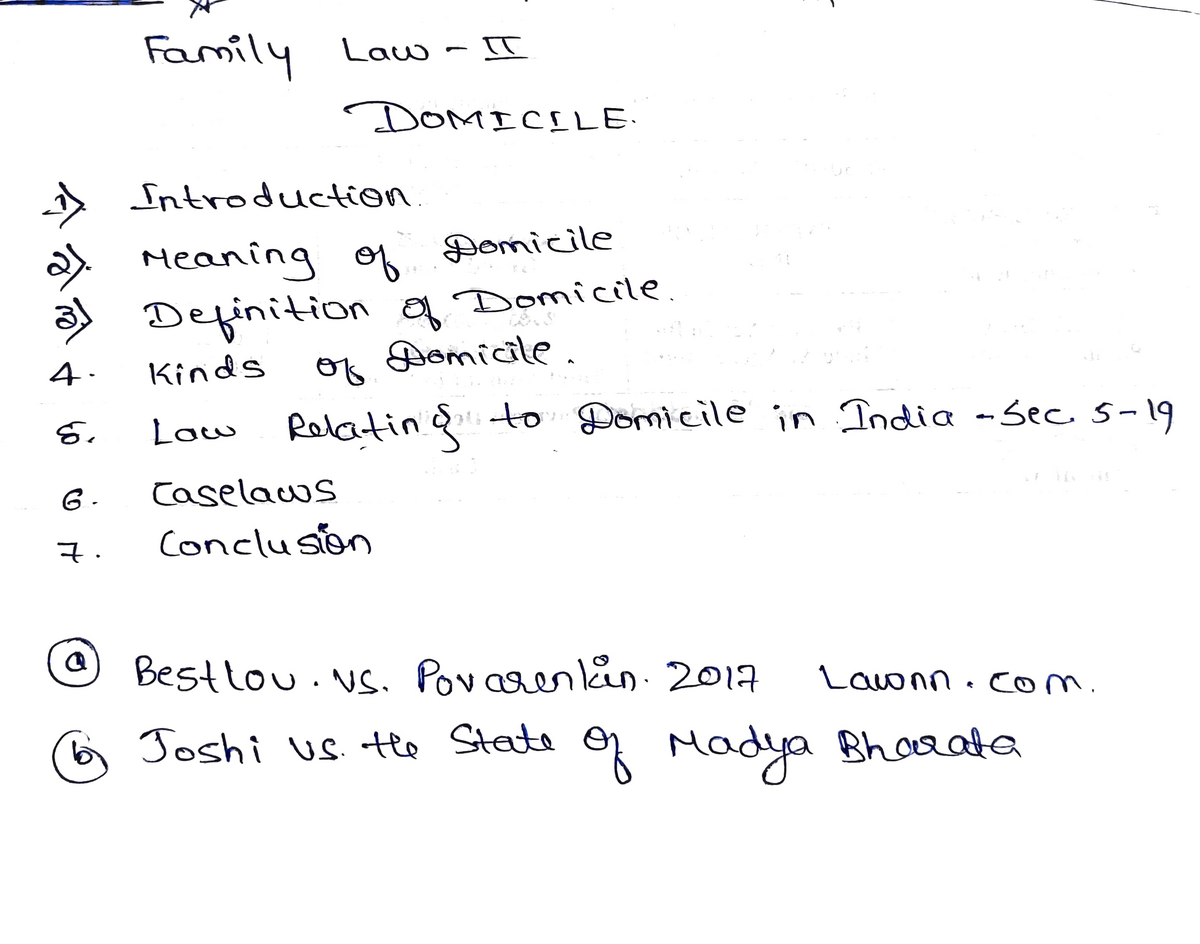 Family Law - II
DOMICILE.
1) Introduction.
2). Meaning of Domicile
3) Definition of Domicile.
4. Kinds of Domicile.
5. Law Relating to Domicile in India - Sec. 5-19
6. Caselaws
7. Conclusion
(a) Bestlov. vs. Povarenkin. 2017 Lawnn.com.
(b) Joshi vs. the State of Madya Bharata